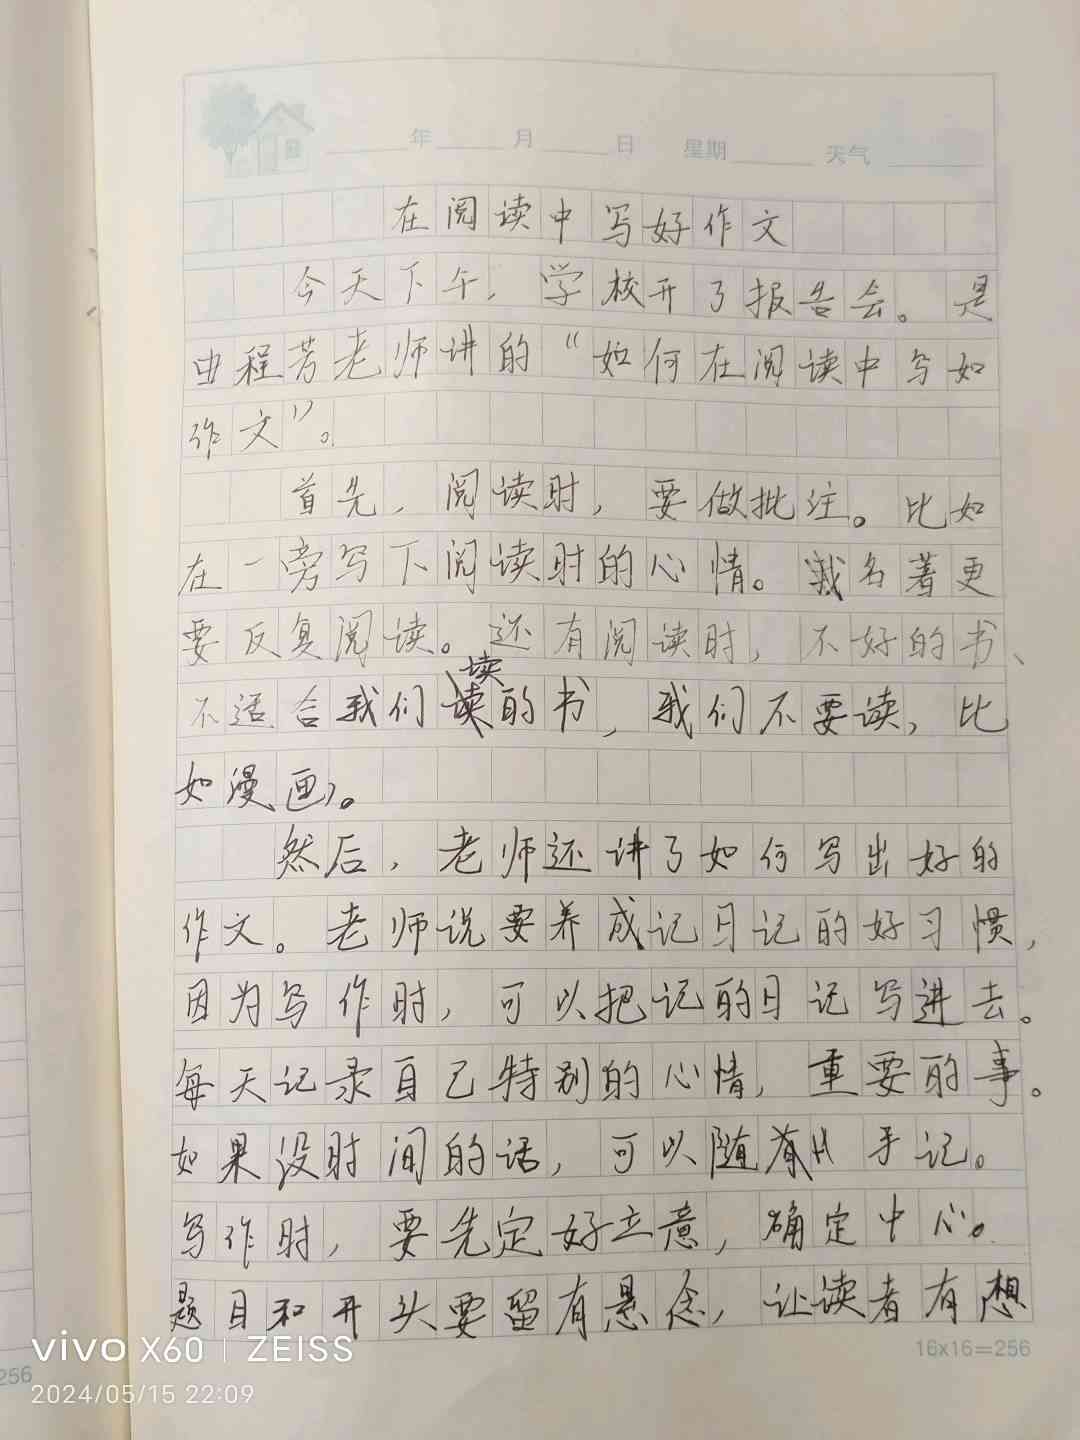 年 月 日 星期 天气
在阅读中写好作文
今天下午,学校开了报告会。是
由程芳老师讲的“如何在阅读中写如
作文”。
首先,阅读时,要做批注。比如
在一旁写下阅读时的心情。名著更
要反复阅读。还有阅读时,不好的书、
不适合我们读的书,我们不要读,比
如漫画。
然后,老师还讲了如何写出好的
作文。老师说要养成记日记的好习惯,
因为写作时,可以把记的日记写进去。
每天记录自己特别的心情,重要的事。
如果没时间的话,可以随手记。
写作时,要先定好立意,确定中心。
题目和开头要留有悬念,让读者有想
16x16=256
256
vivo X60 | ZEISS
2024/05/15 22:09